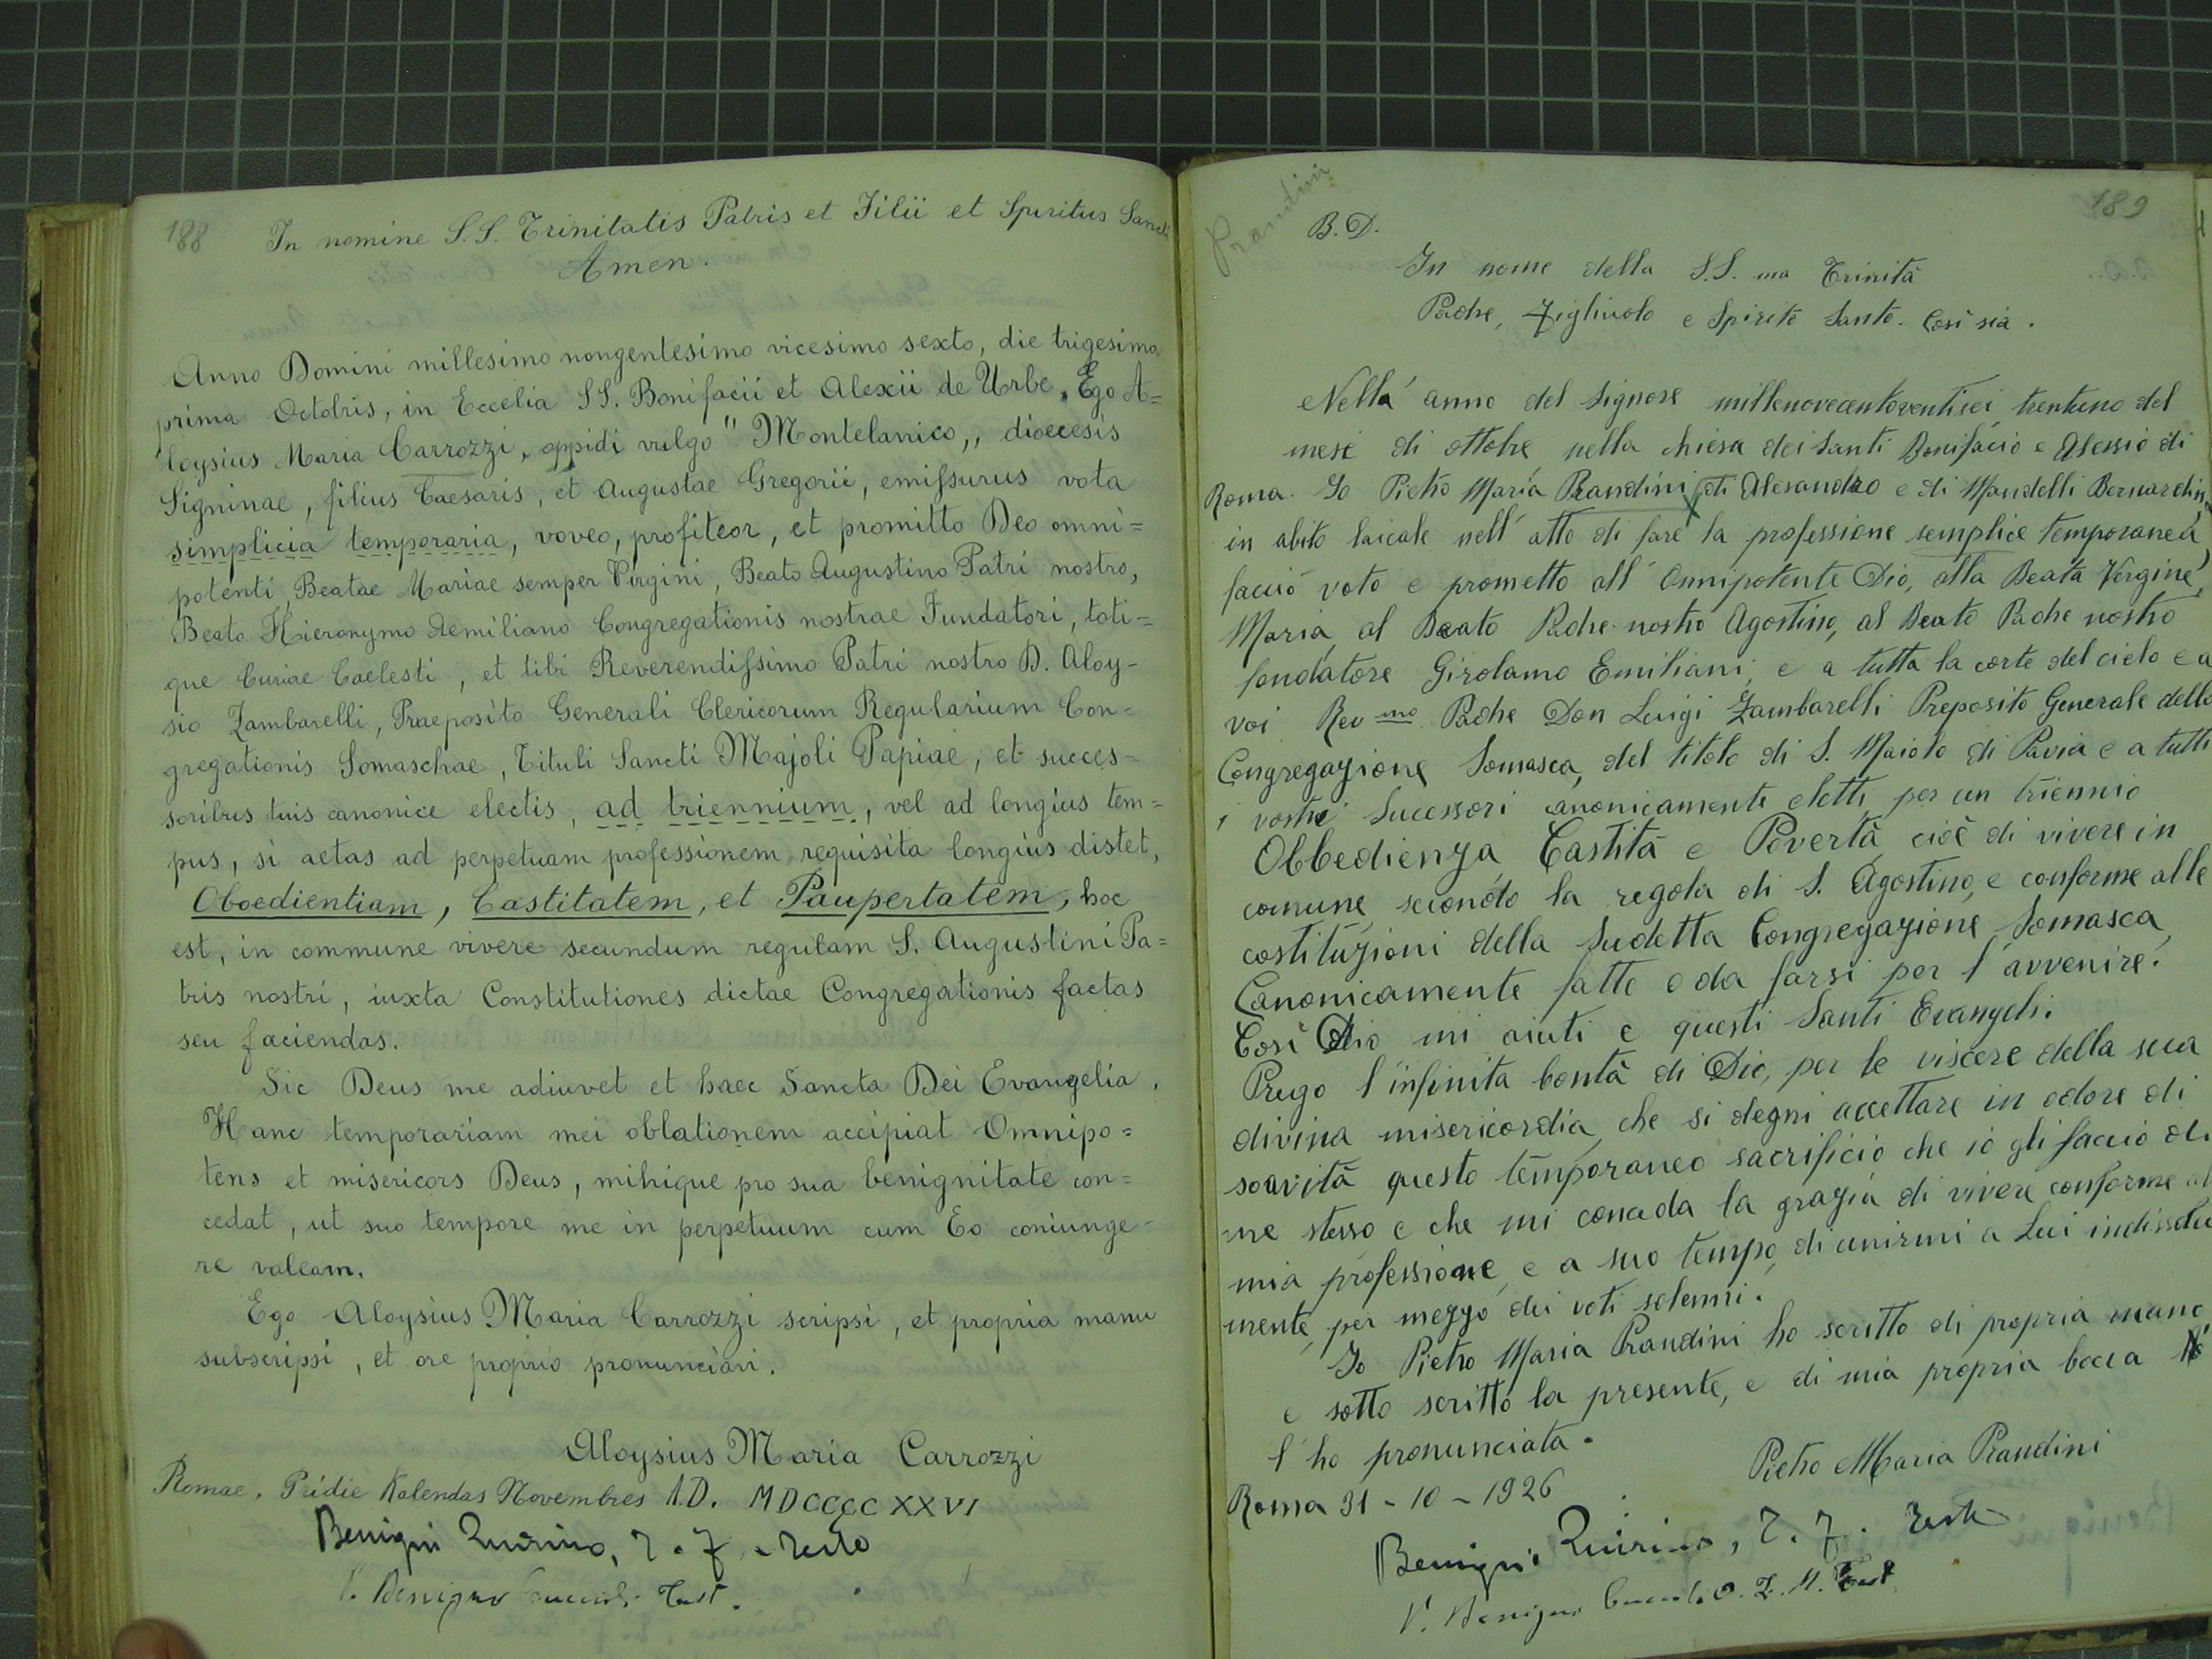 188
In nomine S.S. Trinitatis Patris et Filii et Spiritus Sancti
Amen.
Anno Domini millesimo nongentesimo vicesimo sexto, die trigesima
prima Octobris, in Eccelia SS. Bonifacii et Alexii de Urbe, Ego A=
loysius Maria Carrozzi, oppidi vulgo "Montelanico,, dioecesis
Signinae, filius Caesaris, et Augustae Gregorii, emissurus vota
simplicia temporaria, voveo, profiteor, et promitto Deo omni=
potenti, Beatae Mariae semper Virgini, Beato Augustino Patri nostro,
Beato Hieronymo Aemiliano Congregationis nostrae Fundatori, toti=
que Curiae Caelesti, et tibi Reverendissimo Patri nostro D. Aloy-
sio Zambarelli, Praeposito Generali Clericorum Regularium Con=
gregationis Somaschae, Tituli Sancti Majoli Papiae, et succes-
soribus tuis canonice electis, ad triennium, vel ad longius tem=
pus, si aetas ad perpetuam professionem requisita longius distet,
Oboedientiam, Castitatem, et Paupertatem, hoc
est, in commune vivere secundum regulam S. Augustini Pa=
tris nostri, iuxta Constitutiones dictae Congregationis factas
seu faciendas.
Sic Deus me adiuvet et haec Sancta Dei Evangelia.
Hanc temporariam mei oblationem accipiat Omnipo=
tens et misericors Deus, mihique pro sua benignitate con=
cedat, ut suo tempore me in perpetuum cum Eo coniunge-
re valeam.
Ego Aloysius Maria Carrozzi scripsi, et propria manu
subscripsi, et ore proprio pronunciavi.
Aloysius Maria Carrozzi
Romae, Pridie Kalendas Novembres A.D. MDCCCCXXVI
Benigni Quirino, T. F. Teste
P. Benigno Test.
Prandini
189
B.D.
In nome della S.S. ma Trinità
Padre, Figliuolo e Spirito Santo. Così sia.
Nella' anno del Signore millenovecentoventisei trentuno del
mese di ottobre nella chiesa dei Santi Bonifacio e Alessio di
Roma. Io Pietro Maria Prandini di Alesandro e di Mandelli Bernardina
in abito laicale nell' atto di fare la professione semplice temporanea,
faccio voto e prometto all' Onnipotente Dio, alla Beata Vergine,
Maria, al Beato Padre nostro Agostino, al Beato Padre nostro
fondatore Girolamo Emiliani, e a tutta la corte del cielo e a
voi Rev mo Padre Don Luigi Zambarelli Preposito Generale della
Congregazione Somasca, del titolo di S. Maiolo di Pavia e a tutti
i vostri Sucessori canonicamente eletti per un triennio
Obbedienza Castità e Povertà, cioè di vivere in
comune, secondo la regola di S. Agostino, e conforme alle
costituzioni della Sudetta Congregazione Somasca,
Canonicamente fatte o da farsi per l'avvenire.
Così Dio mi aiuti e questi Santi Evangeli.
Prego l'infinita bontà di Dio, per le viscere della sua
divina misericordia, che si degni accettare in odore di
soavità questo temporaneo sacrificio che io gli faccio di
me stesso e che mi conceda la grazia di vivere conforme al
mia professione, e a suo tempo, di unirmi a Lui indissolu
mente, per mezzo dei voti solenni.
Io Pietro Maria Prandini ho scritto di propria mano
e sotto scritto la presente, e di mia propria bocca
l'ho pronunciata.
Pietro Maria Prandini
Roma 31-10-1926
Benigni Quirino, T. F. Teste
P. Benigno Test